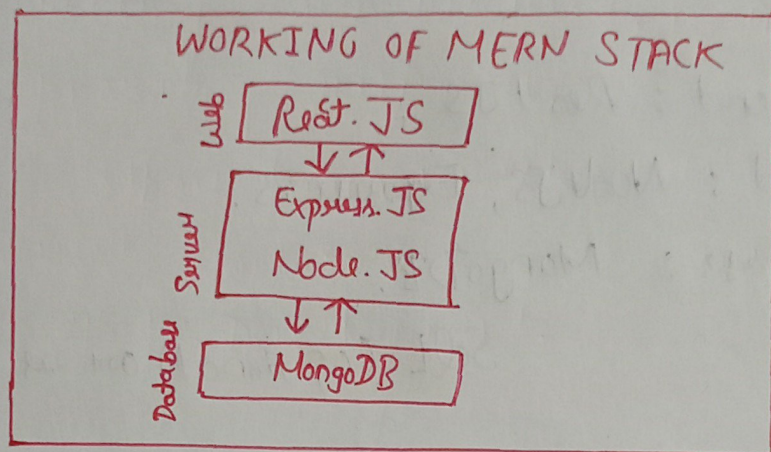 WORKING OF MERN STACK
Web
React.JS
Server
Express.JS
Node.JS
Database
MongoDB